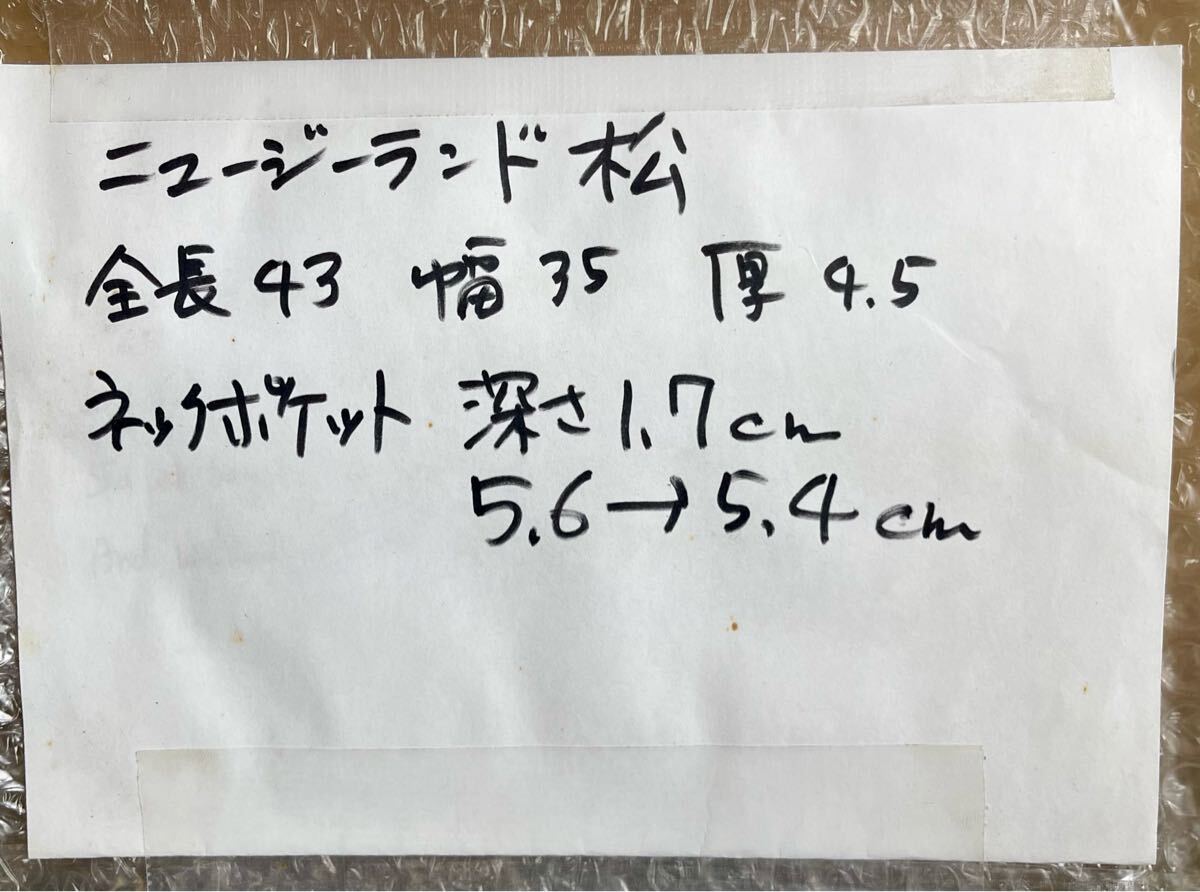 ニュージーランド松
全長43 幅35 厚4.5
ネックポケット 深さ1.7cm
5.6→5.4cm